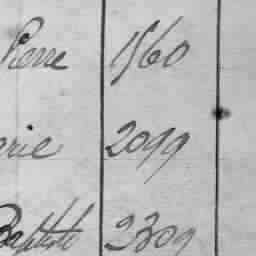 Pierre 1560
erie 2099
Baptiste 2309